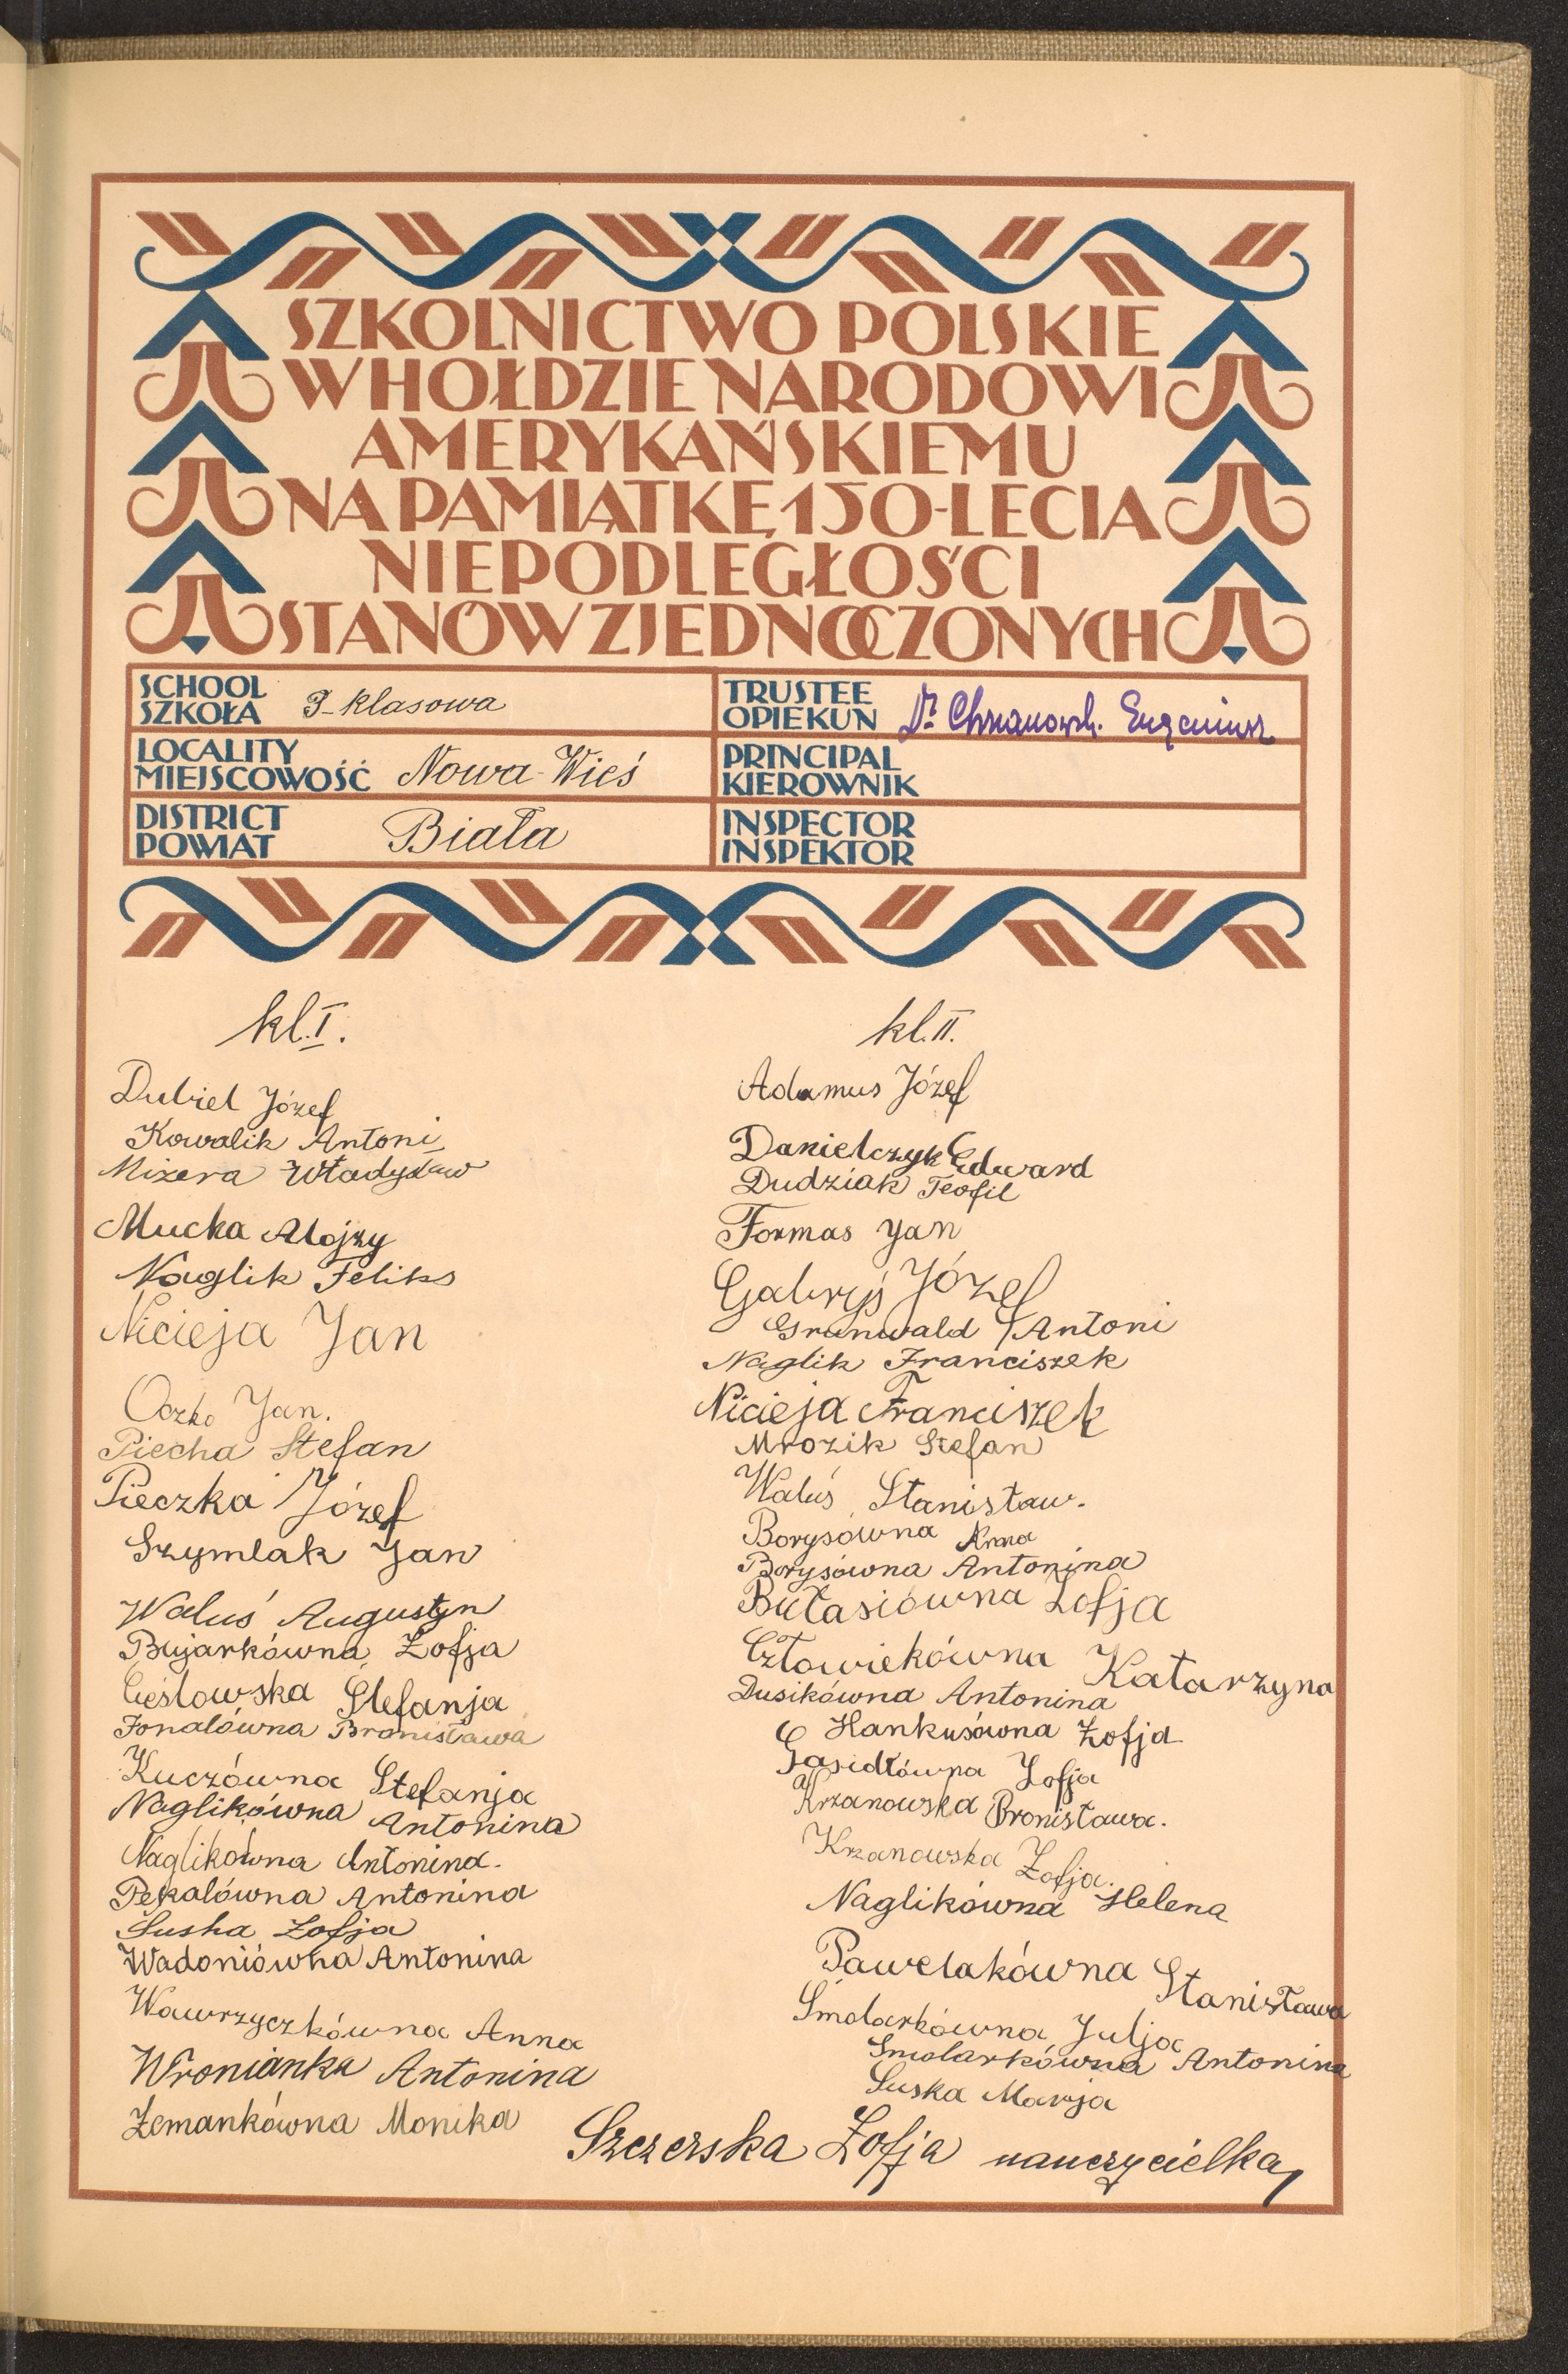 SZKOLNICTWO POLSKIE
W HOŁDZIE NARODOWI
AMERYKAŃSKIEMU
NA PAMIĄTKĘ 150-LECIA
NIEPODLEGŁOŚCI
STANÓW ZJEDNOCZONYCH
SCHOOL
SZKOŁA klasowa
TRUSTEE
OPIEKUN Dr Chrzanowsk. Eugeniusz
LOCALITY
MIEJSCOWOŚĆ Nowa-Wieś
PRINCIPAL
KIEROWNIK
DISTRICT
POWIAT Biała
INSPECTOR
INSPEKTOR
kl. I.
Dubiel Józef
Kowalik Antoni
Mizera Władysław
Mucka Alojzy
Naglik Feliks
Nicieja Jan
Oczko Jan.
Piecha Stefan
Pieczka Józef
Szymlak Jan
Waluś Augustyn
Bujarkówna Zofja
Cieślowska Stefanja
Fonalówna Bronisława
Kuczówna Stefanja
Naglikówna Antonina
Naglikówna Antonina.
Pękalówna Antonina
Suska Zofja
Wadoniówna Antonina
Wawrzyczkówna Anna
Wronianka Antonina
Zemankówna Monika
kl. II.
Adamus Józef
Danielczyk Edward
Dudziak Teofil
Formas Jan
Gabryś Józef
Grunwald Antoni
Naglik Franciszek
Nicieja Franciszek
Mrozik Stefan
Waluś Stanisław.
Borysówna Anna
Borysówna Antonina
Bułasiówna Zofja
Człowiekówna Katarzyna
Dusikówna Antonina
Hankusówna Zofja
Gasidłówna Zofja
Krzanowska Bronisława.
Krzanowska Zofja.
Naglikówna Helena
Pawelakówna Stanisława
Smolarkówna Julja
Smolarkówna Antonina
Suska Marja
Szczerska Zofja nauczycielka,